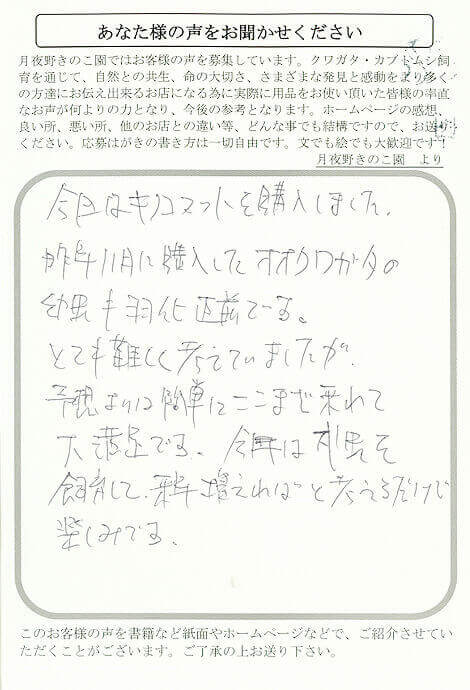 あなた様の声をお聞かせください
月夜野きのこ園ではお客様の声を募集しています。クワガタ・カブトムシ飼
育を通じて、自然との共生、命の大切さ、さまざまな発見と感動をより多く
の方達にお伝え出来るお店になる為に実際に用品をお使い頂いた皆様の率直
なお声が何よりの力となり、今後の参考となります。ホームページの感想、
良い所、悪い所、他のお店との違い等、どんな事でも結構ですので、お送り
ください。応募はがきの書き方は一切自由です。文でも絵でも大歓迎です！
月夜野きのこ園 より
今回はキノコマットを購入しました。
昨年11月に購入したオオクワガタの
幼虫も羽化直前である。
とても難しく考えていましたが、
予想よりは簡単にここまで来れて
大満足です。今年は を
飼育して、来年増えればと考えるだけで
楽しみです。
このお客様の声を書籍など紙面やホームページなどで、ご紹介させてい
ただくことがございます。ご了承の上お送り下さい。